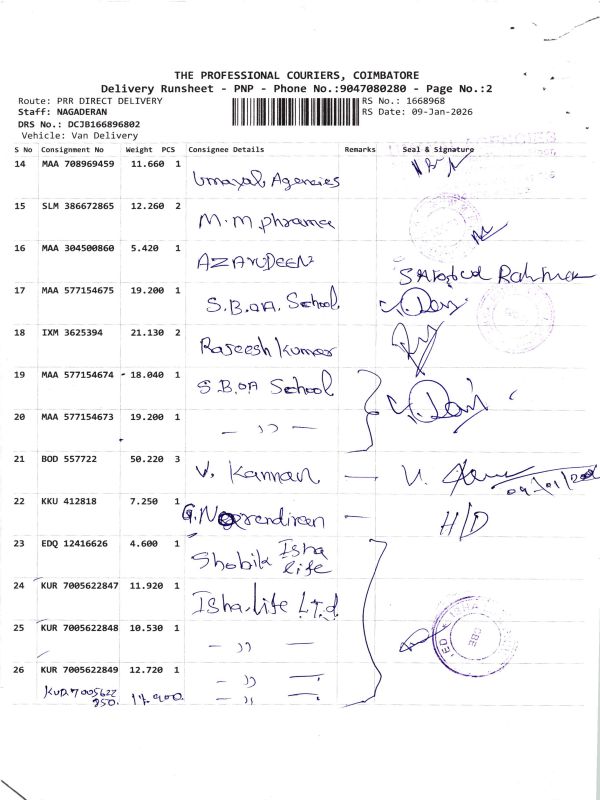 THE PROFESSIONAL COURIERS, COIMBATORE
Delivery Runsheet - PNP - Phone No.:9047080280 - Page No.:2
Route: PRR DIRECT DELIVERY RS No.: 1668968
Staff: NAGADERAN RS Date: 09-Jan-2026
DRS No.: DCJB166896802
Vehicle: Van Delivery
S No Consignment No Weight PCS Consignee Details Remarks Seal & Signature
14 MAA 708969459 11.660 1 Umayal Agencies
15 SLM 386672865 12.260 2 M.M.phrama
16 MAA 304500860 5.420 1 AZARUDEEN
17 MAA 577154675 19.200 1 S.B.OA. School
18 IXM 3625394 21.130 2 Rajeesh Kumar
19 MAA 577154674 18.040 1 S.B.OA School
20 MAA 577154673 19.200 1 — ,, —
21 BOD 557722 50.220 3 V. Kannan —
22 KKU 412818 7.250 1 — H/D
23 EDQ 12416626 4.600 1 Shobik Isha life
24 KUR 7005622847 11.920 1 Isha life Ltd.
25 KUR 7005622848 10.530 1 - ,, —
26 KUR 7005622849 12.720 1 - ,, —
KUR.7005622 850. 17.900. - ,, —